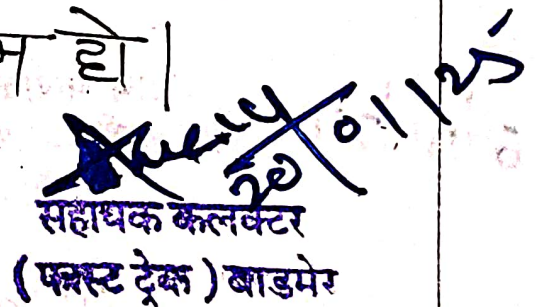 हो।
20/01/25
सहायक कलक्टर
(फास्ट ट्रेक) बाडमेर